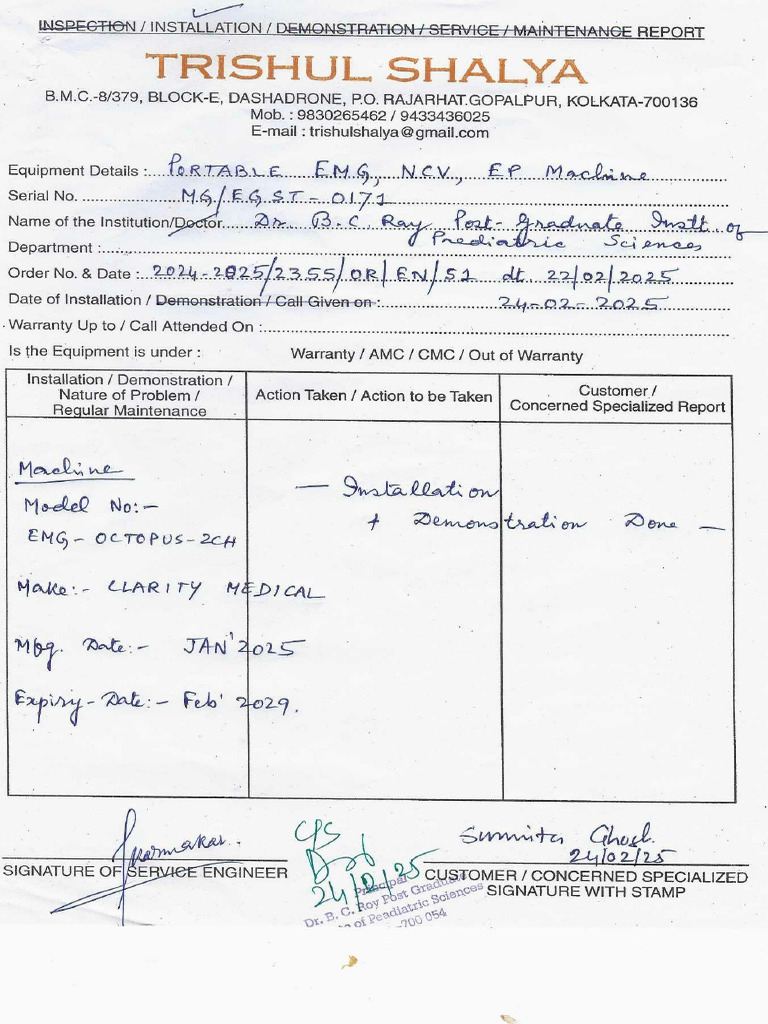 INSPECTION / INSTALLATION / DEMONSTRATION / SERVICE / MAINTENANCE REPORT
TRISHUL SHALYA
B.M.C.-8/379, BLOCK-E, DASHADRONE, P.O. RAJARHAT.GOPALPUR, KOLKATA-700136
Mob. : 9830265462 / 9433436025
E-mail : trishulshalya@gmail.com
Equipment Details : PORTABLE EMG, NCV, EP Machine
Serial No. MG/EG ST - 0171
Name of the Institution/Doctor Dr. B.C Ray Post-Graduate Instt of
Department : Prediatric Sciences
Order No. & Date : 2024-2025/2355/OR/EN/51 dt 22/02/2025
Date of Installation / Demonstration / Call Given on : 24-02-2025
Warranty Up to / Call Attended On :
Is the Equipment is under : Warranty / AMC / CMC / Out of Warranty
Installation / Demonstration /
Nature of Problem /
Regular Maintenance
Action Taken / Action to be Taken
Customer /
Concerned Specialized Report
Machine
Model No:-
EMG - OCTOPUS - 2CH
Make:- CLARITY MEDICAL
Mfg. Date:- JAN'2025
Expiry-Date:- Feb' 2029.
— Installation
+ Demonstration Done —
Karmakar.
SIGNATURE OF SERVICE ENGINEER
24/2/25
Principal
Dr. B. C. Roy Post Graduate
of Peadiatric Sciences
-700 054
Sumita Ghosh
24/02/25
CUSTOMER / CONCERNED SPECIALIZED
SIGNATURE WITH STAMP